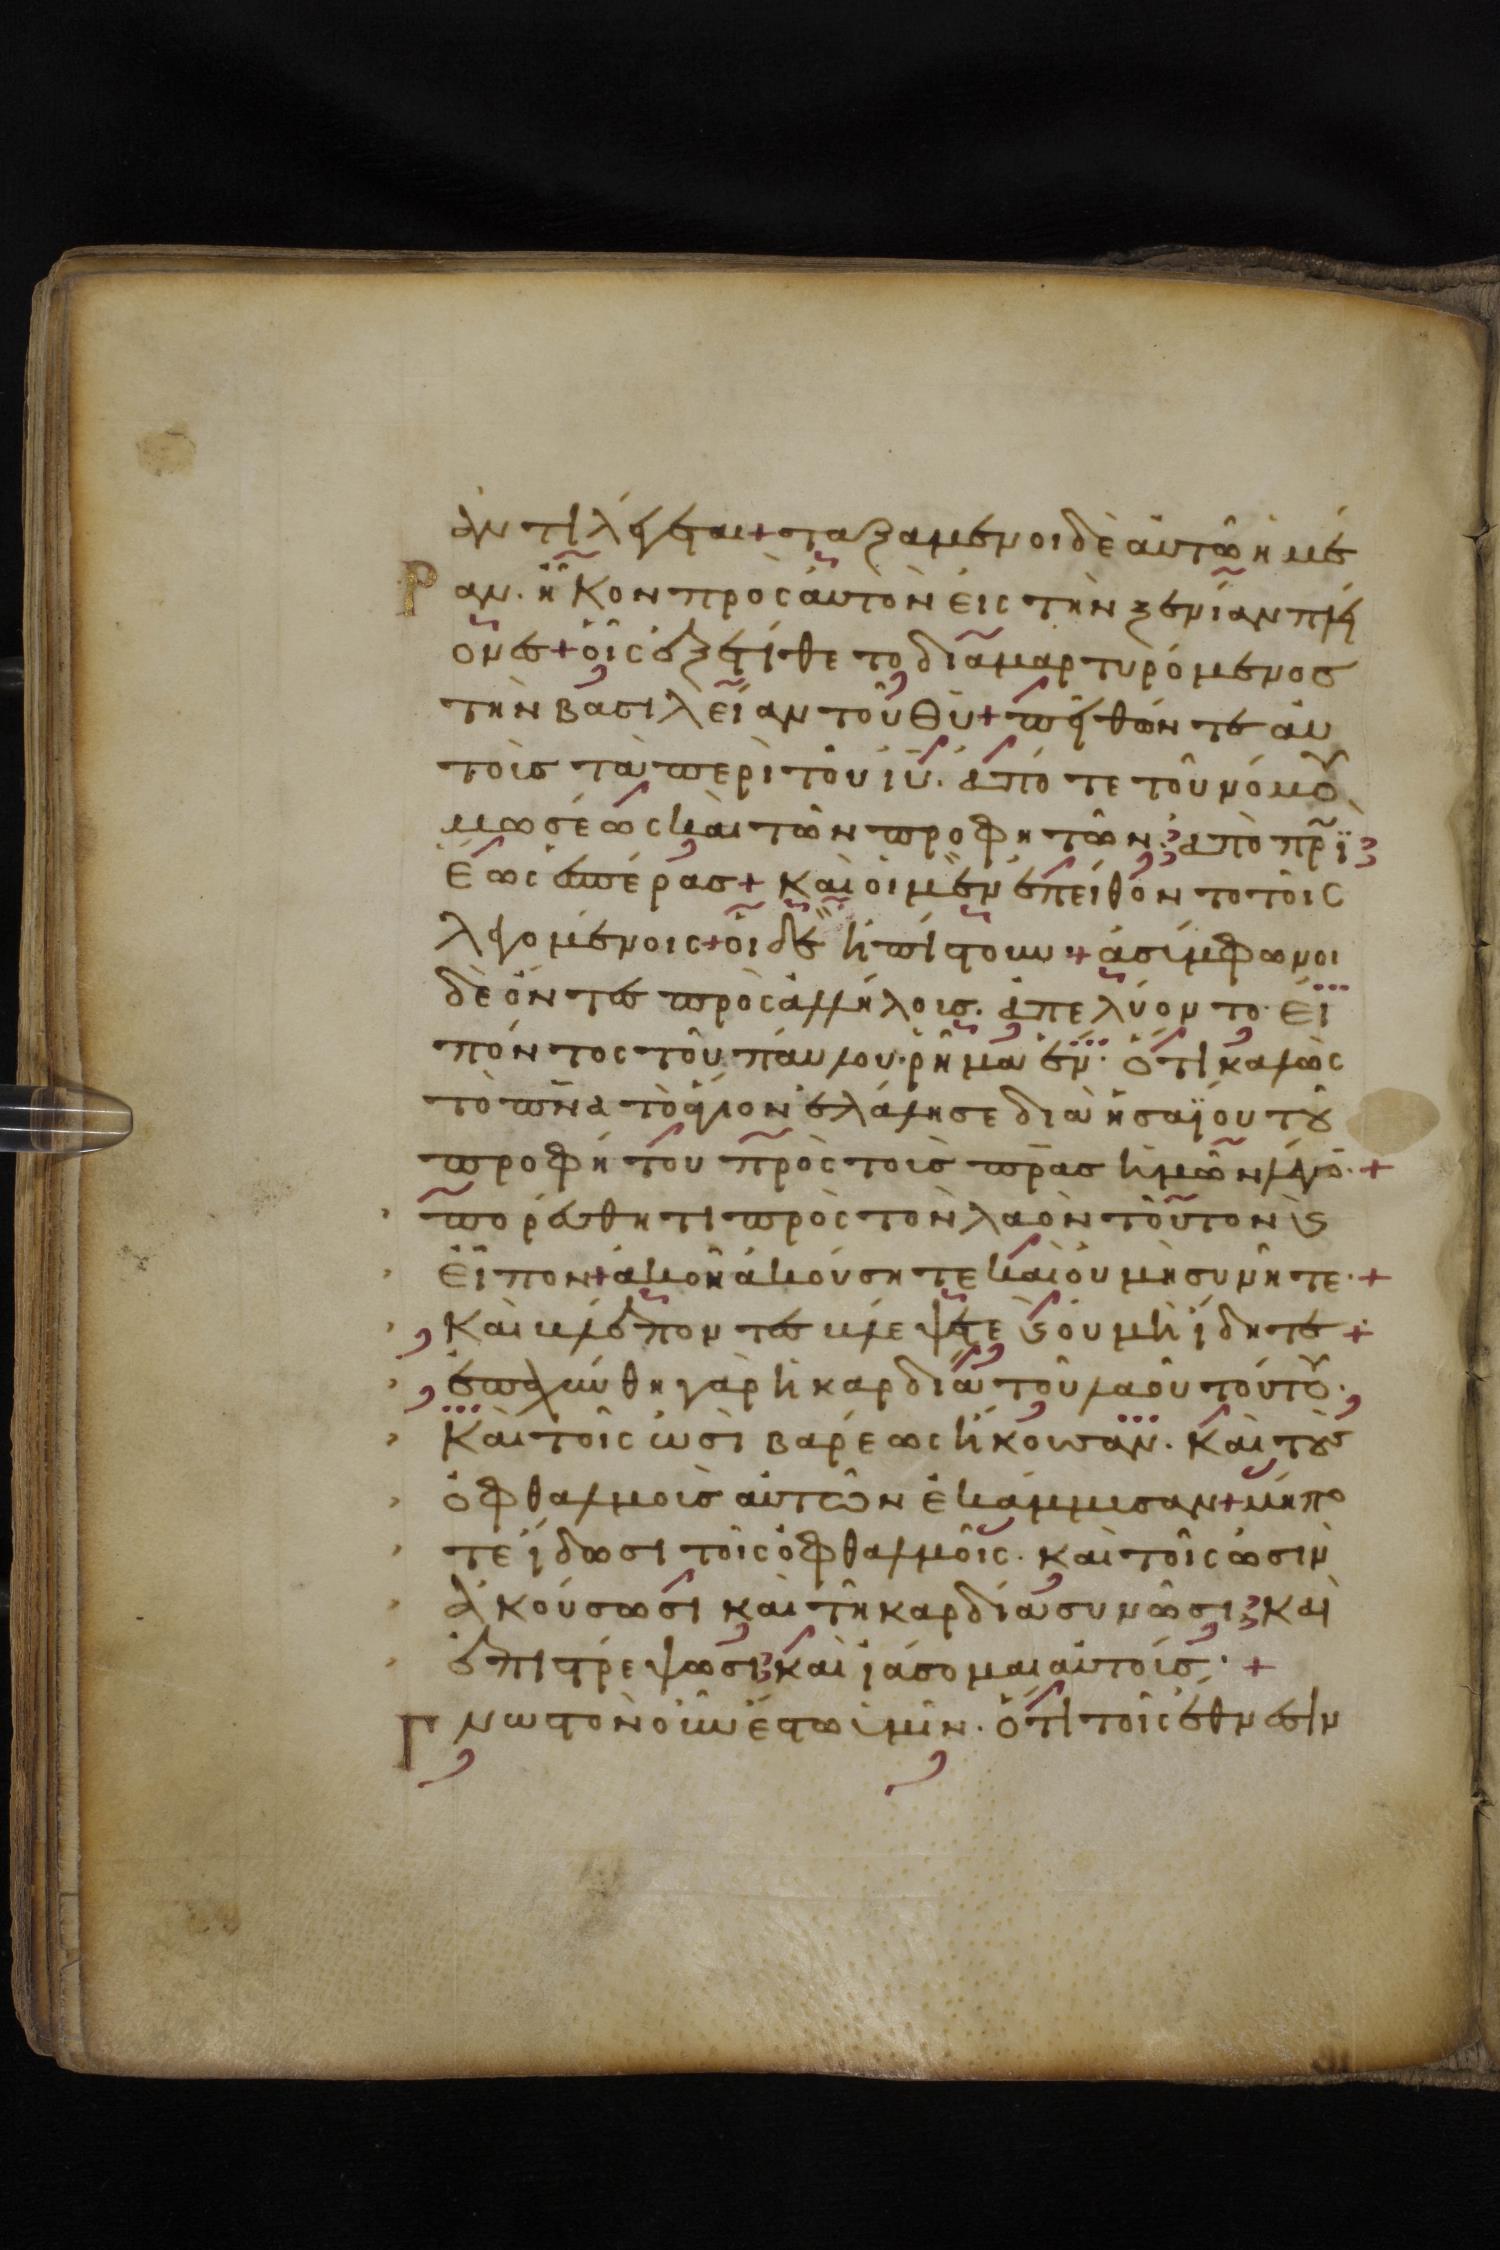 ἀντιλέγεται + ταξάμενοι δὲ ἀυτῶ ἡμέ
ραν. ἧκον πρὸς ἀυτὸν εἰς τὴν ξενίαν πλεί
ονες + οἷς ἐξετίθετο διαμαρτυρόμενος
τὴν βασιλείαν τοῦ θυ + πείθων τε ἀυ
τοὺς τὰ περὶ τοῦ ιυ. ἀπό τε τοῦ νόμου
μωσέως καὶ τῶν προφητῶν. ἀπὸ πρωῒ
ἕως ἑσπέρας + καὶ οἱ μὲν ἐπείθοντο τοῖς
λεγομένοις + οἱ δὲ ἠπίστουν + ἀσύμφωνοι
δὲ ὄντες πρὸς ἀλλήλους. ἀπελύοντο. εἰ
πόντος τοῦ παύλου. ῥῆμα ἕν. ὅτι καλῶς
τὸ πνα τὸ ἅγιον ἐλάλησε διὰ ἡσαΐου τοῦ
προφήτου πρὸς τοὺς πρας ἡμῶν λέγον. +
πορεύθητι πρὸς τὸν λαὸν τοῦτον καὶ
εἶπον + ἀκοῆ ἀκούσητε καὶ οὐ μὴ συνῆτε. +
καὶ βλέποντες βλέψετε καὶ οὐ μὴ ἴδητε +
ἐπαχύνθη γὰρ ἡ καρδία τοῦ λαοῦ τούτου.
καὶ τοῖς ὠσὶ βαρέως ἤκουσαν. καὶ τοὺς
ὀφθαλμοὺς ἀυτῶν ἐκάμμυσαν + μήπο
τε ἴδωσι τοῖς ὀφθαλμοῖς. καὶ τοῖς ὠσὶν
ἀκούσωσι καὶ τῆ καρδία συνῶσι. καὶ
ἐπιστρέψωσι. καὶ ἰάσομαι ἀυτούς. +
Γνωστὸν οὖν ἔστω ὑμῖν. ὅτι τοῖς ἔθνεσιν